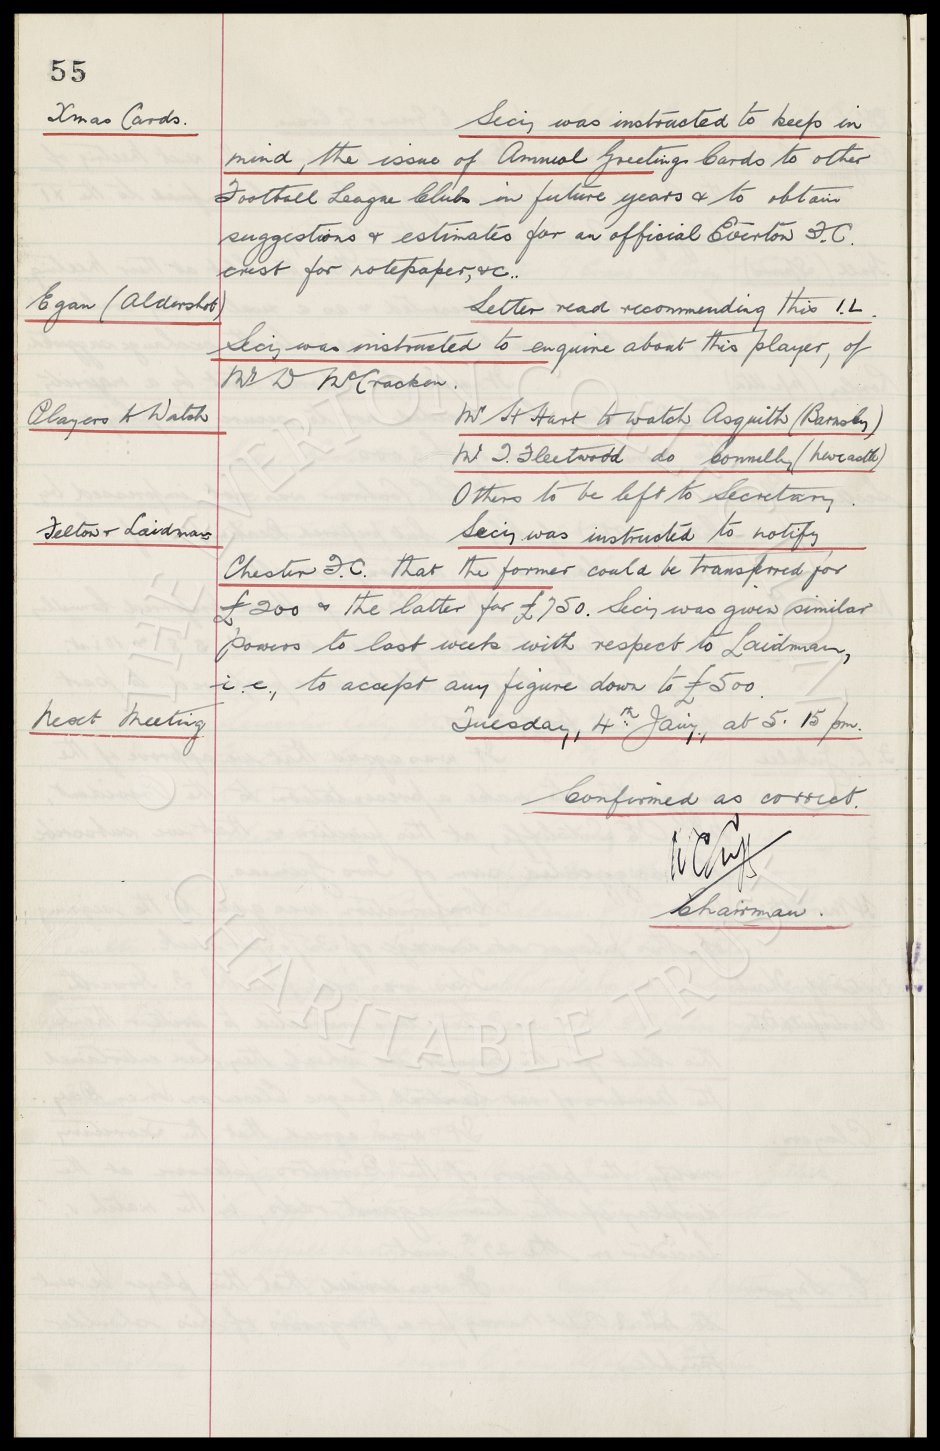 55
Xmas Cards.
Secy was instructed to keep in
mind, the issue of Annual Greetings Cards to other
Football League Clubs in future years & to obtain
suggestions & estimates for an official Everton F.C.
crest for notepaper, &c..
Egan (Aldershot)
Letter read recommending this I.L.
Secy was instructed to enquire about this player, of
Mr D McCracken.
Players to Watch
Mr H Hart to watch Asquith (Barnsley)
Mr T. Fleetwood do Connelly (Newcastle)
Others to be left to Secretary.
Felton & Laidman
Secy was instructed to notify
Chester F.C. that the former could be transferred for
£200 & the latter for £750. Secy was given similar
powers to last week with respect to Laidman,
i.e., to accept any figure down to £500.
Next Meeting
Tuesday, 4th Jany., at 5.15 pm.
Confirmed as correct.
Chairman.
THE EVERTON COLLECTION
CHARITABLE TRUST